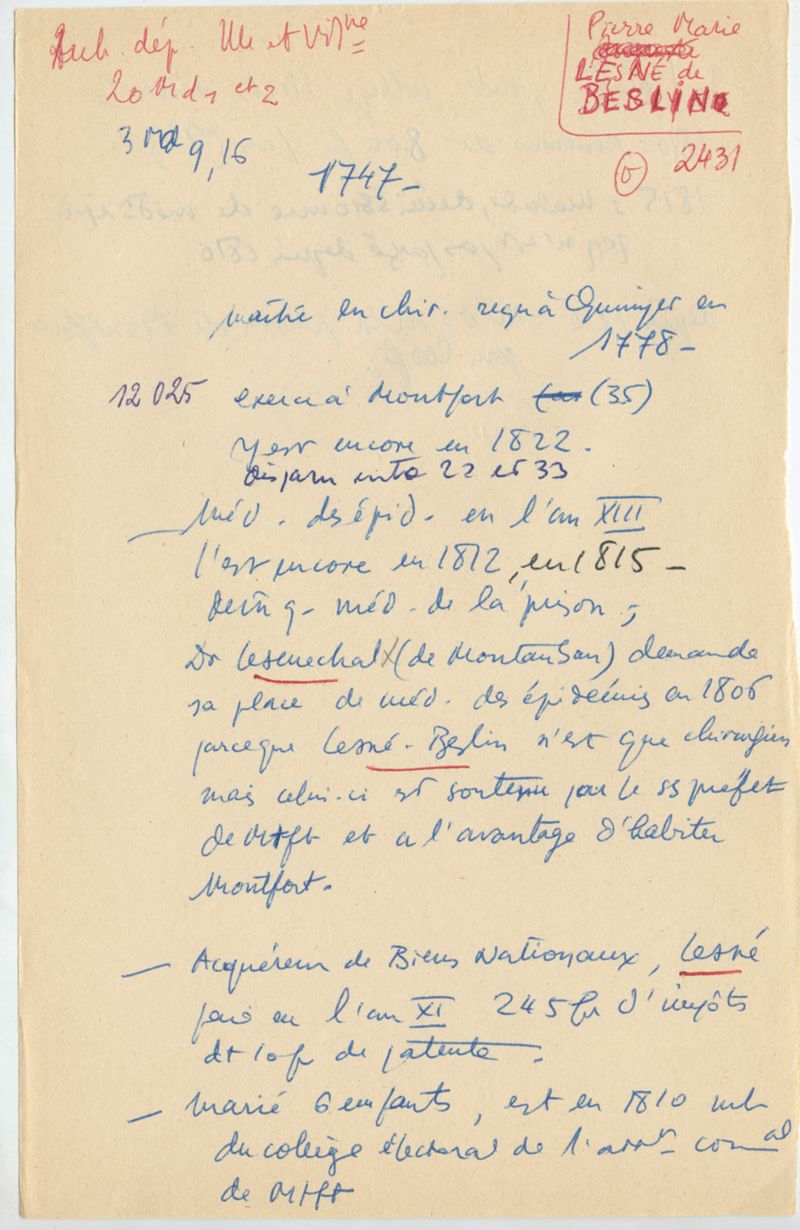 Arch. dép. Ille et Vilne
20 Md 1 et 2
3 Md 9, 16
Pierre Marie
LESNÉ de
BESLIN
2431
1747-
maître en chir. reçu à Quimper en
1778-
12 025 exerce à Montfort (35)
y est encore en 1822.
disparu entre 22 et 33
— Méd. des épid. en l'an XIII
l'est encore en 1812, en 1815 -
méd. de la prison ;
Dr Lesenechal (de Montauban) demande
sa place de méd. des épidémies en 1806
parceque Lesné-Beslin n'est que chirurgien
mais celui-ci est soutenu par le ss préfet
de Mtft et a l'avantage d'habiter
Montfort.
— Acquéreur de Biens Nationaux, Lesné
paie en l'an XI 245 fr d'impôts
dt 10 fr de patente.
— Marié 6 enfants, est en 1810 mb
du collège électoral de l'arrt com al
de Mtft